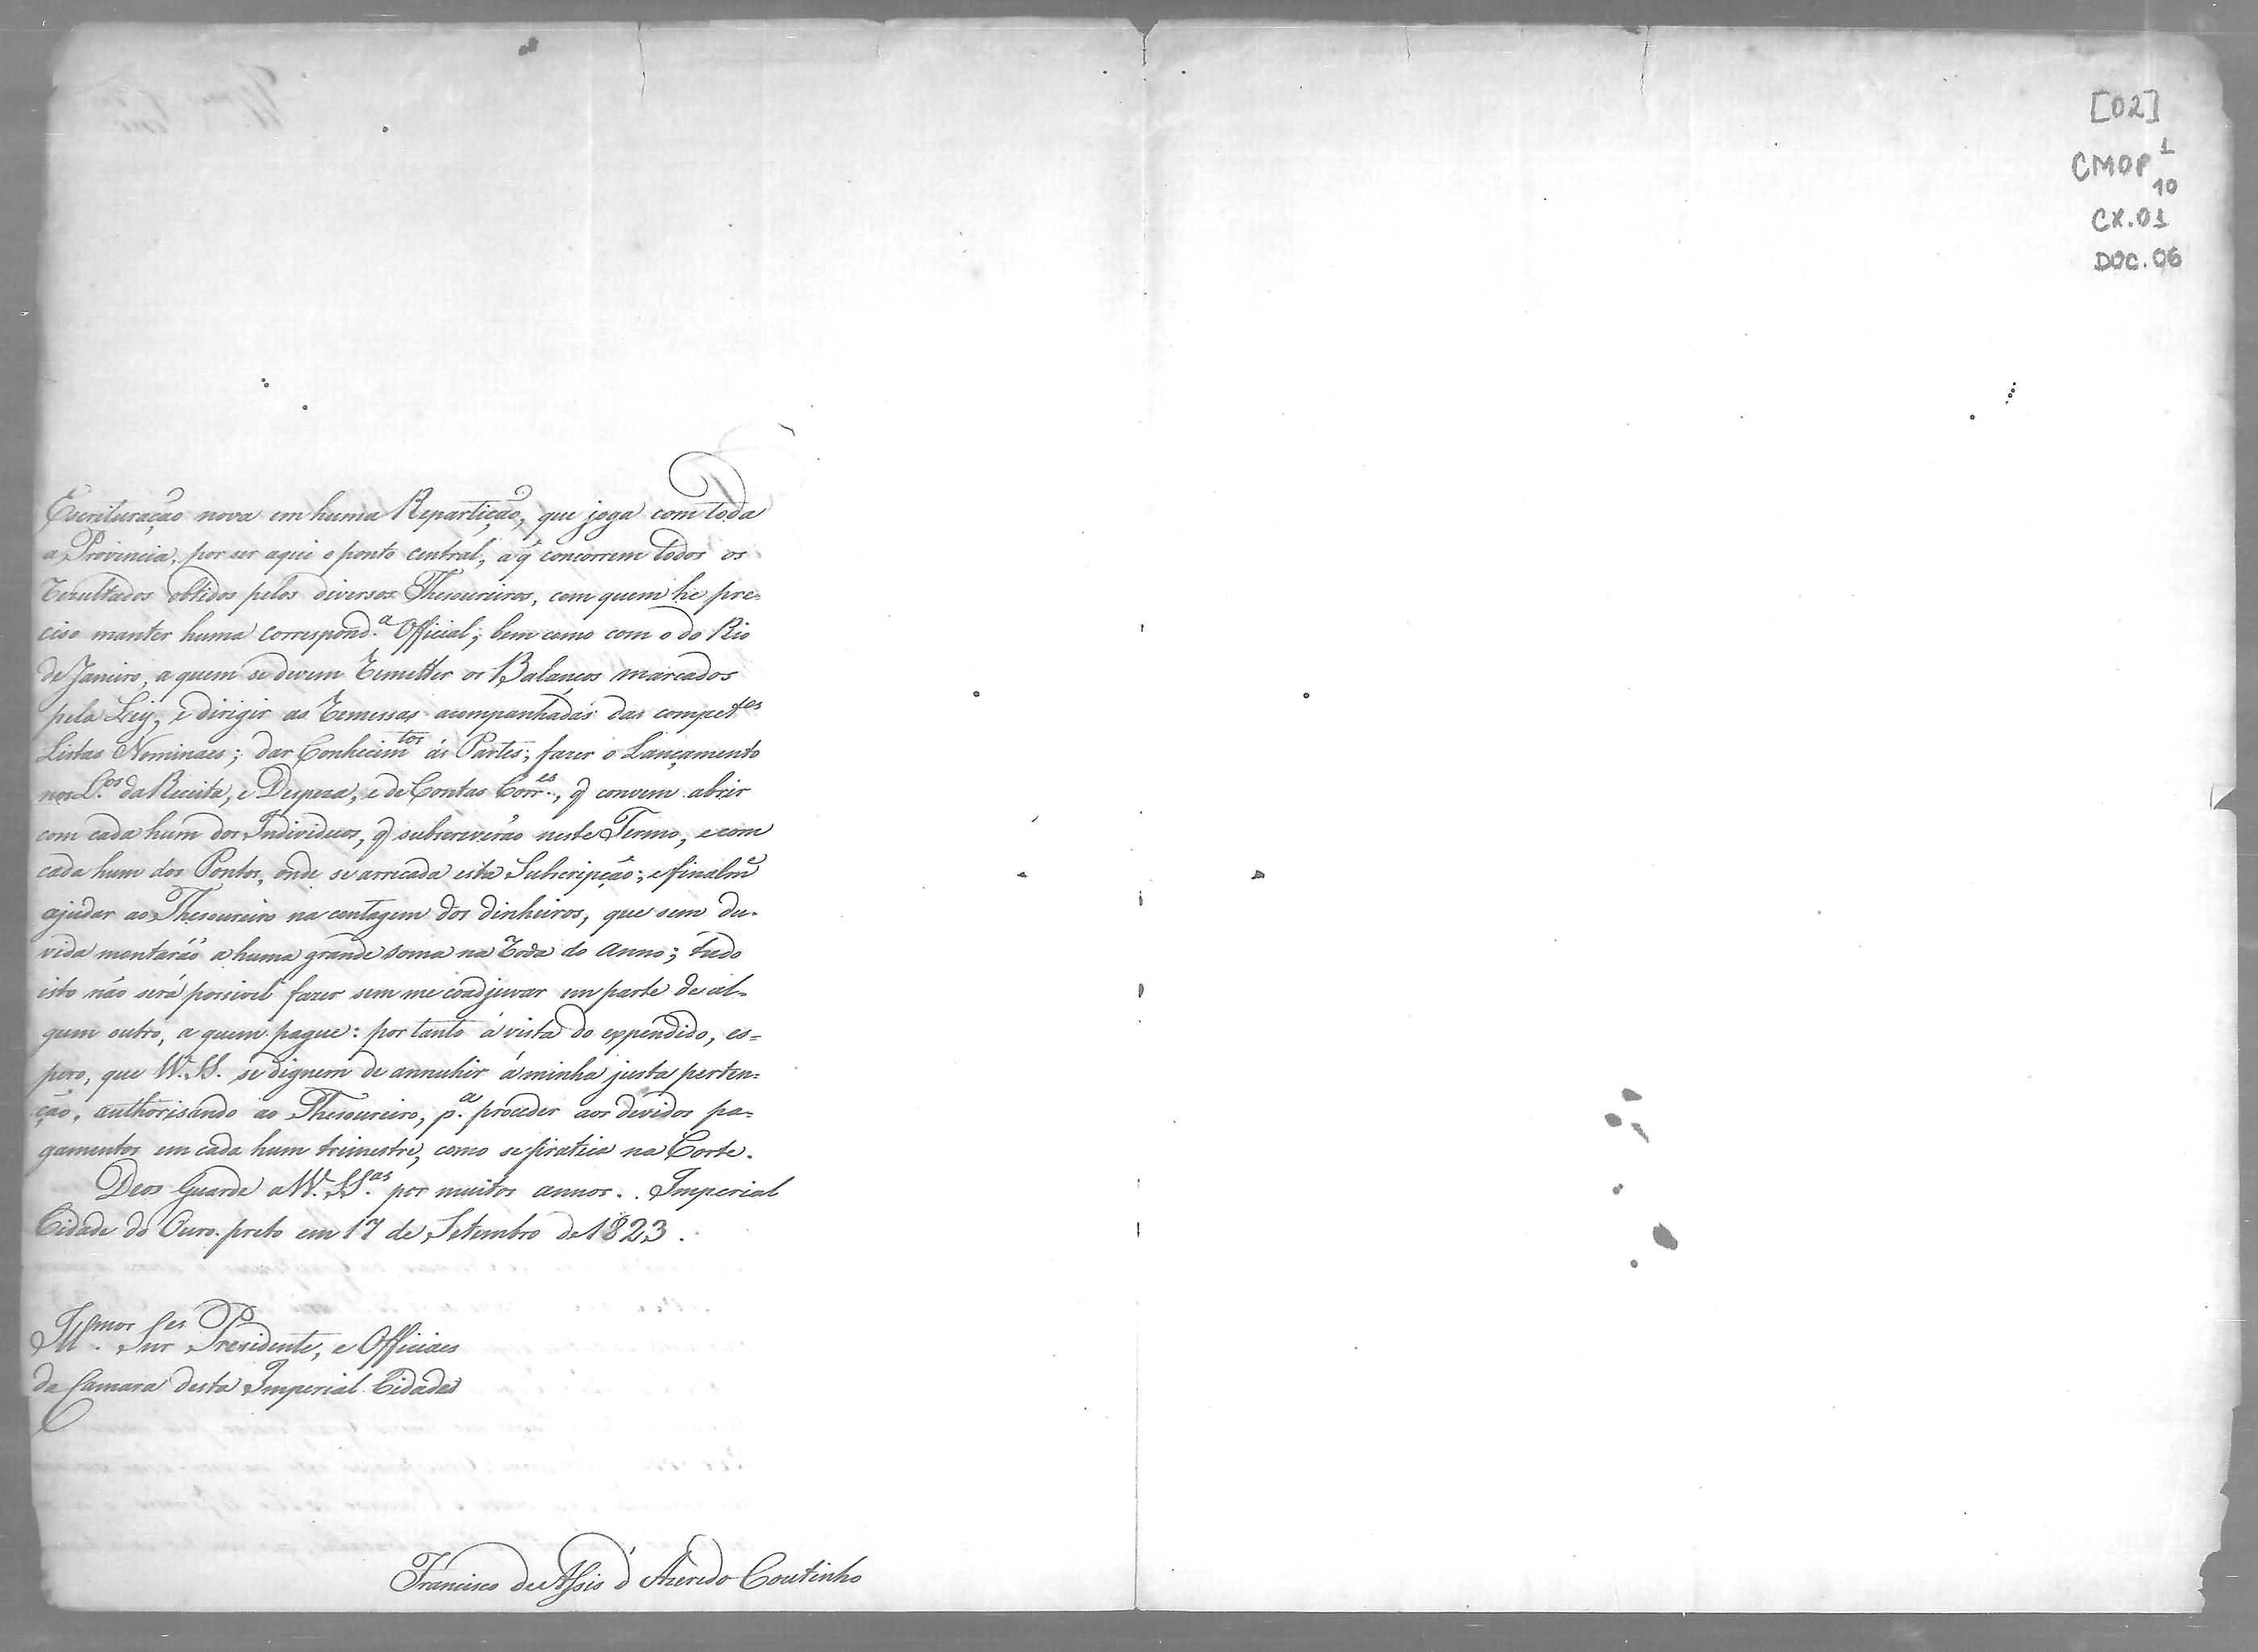 Escrituração nova em huma Repartição, que joga com toda
a Provincia, por ser aqui o ponto central, a q̃ concorrem todos os
rezultados obtidos pelos diversos Thesoureiros, com quem he pre-
ciso manter huma correspond.ª Official; bem como com o do Rio
de Janeiro, a quem se devem remetter os Balanços marcados
pela Ley, e dirigir as remessas acompanhadas das compet.es
Listas Nominaes; dar Conhecim.tos ás Partes; fazer o Lançamento
nos L.os da Receita, e Despeza, e de Contas Corr.es, q̃ convem abrir
com cada hum dos Individuos, q̃ subscreverão neste Termo, e com
cada hum dos Pontos, onde se arrecada esta Subscripção; e finalm.e
ajudar ao Thesoureiro na contagem dos dinheiros, que sem du-
vida montarão a huma grande soma na roda do anno; tudo
isto não será possivel fazer sem me coadjuvar em parte de al-
gum outro, a quem pague: por tanto á vista do expendido, es=
pero, que V.V. S.S. se dignem de annuhir á minha justa perten=
ção, authorisando ao Thesoureiro, p.ª proceder aos devidos pa=
gamentos em cada hum trimestre, como se pratica na Corte.
Deos Guarde a V.V. S.S.as por muitos annos. Imperial
Cidade do Ouro preto em 17 de Setembro de 1823.
Ill.mos Snr.es Presidente, e Officiaes
da Camara desta Imperial Cidade
Francisco de Assis d'Azeredo Coutinho
[02]
CMOP 1
10
CX.01
DOC.06